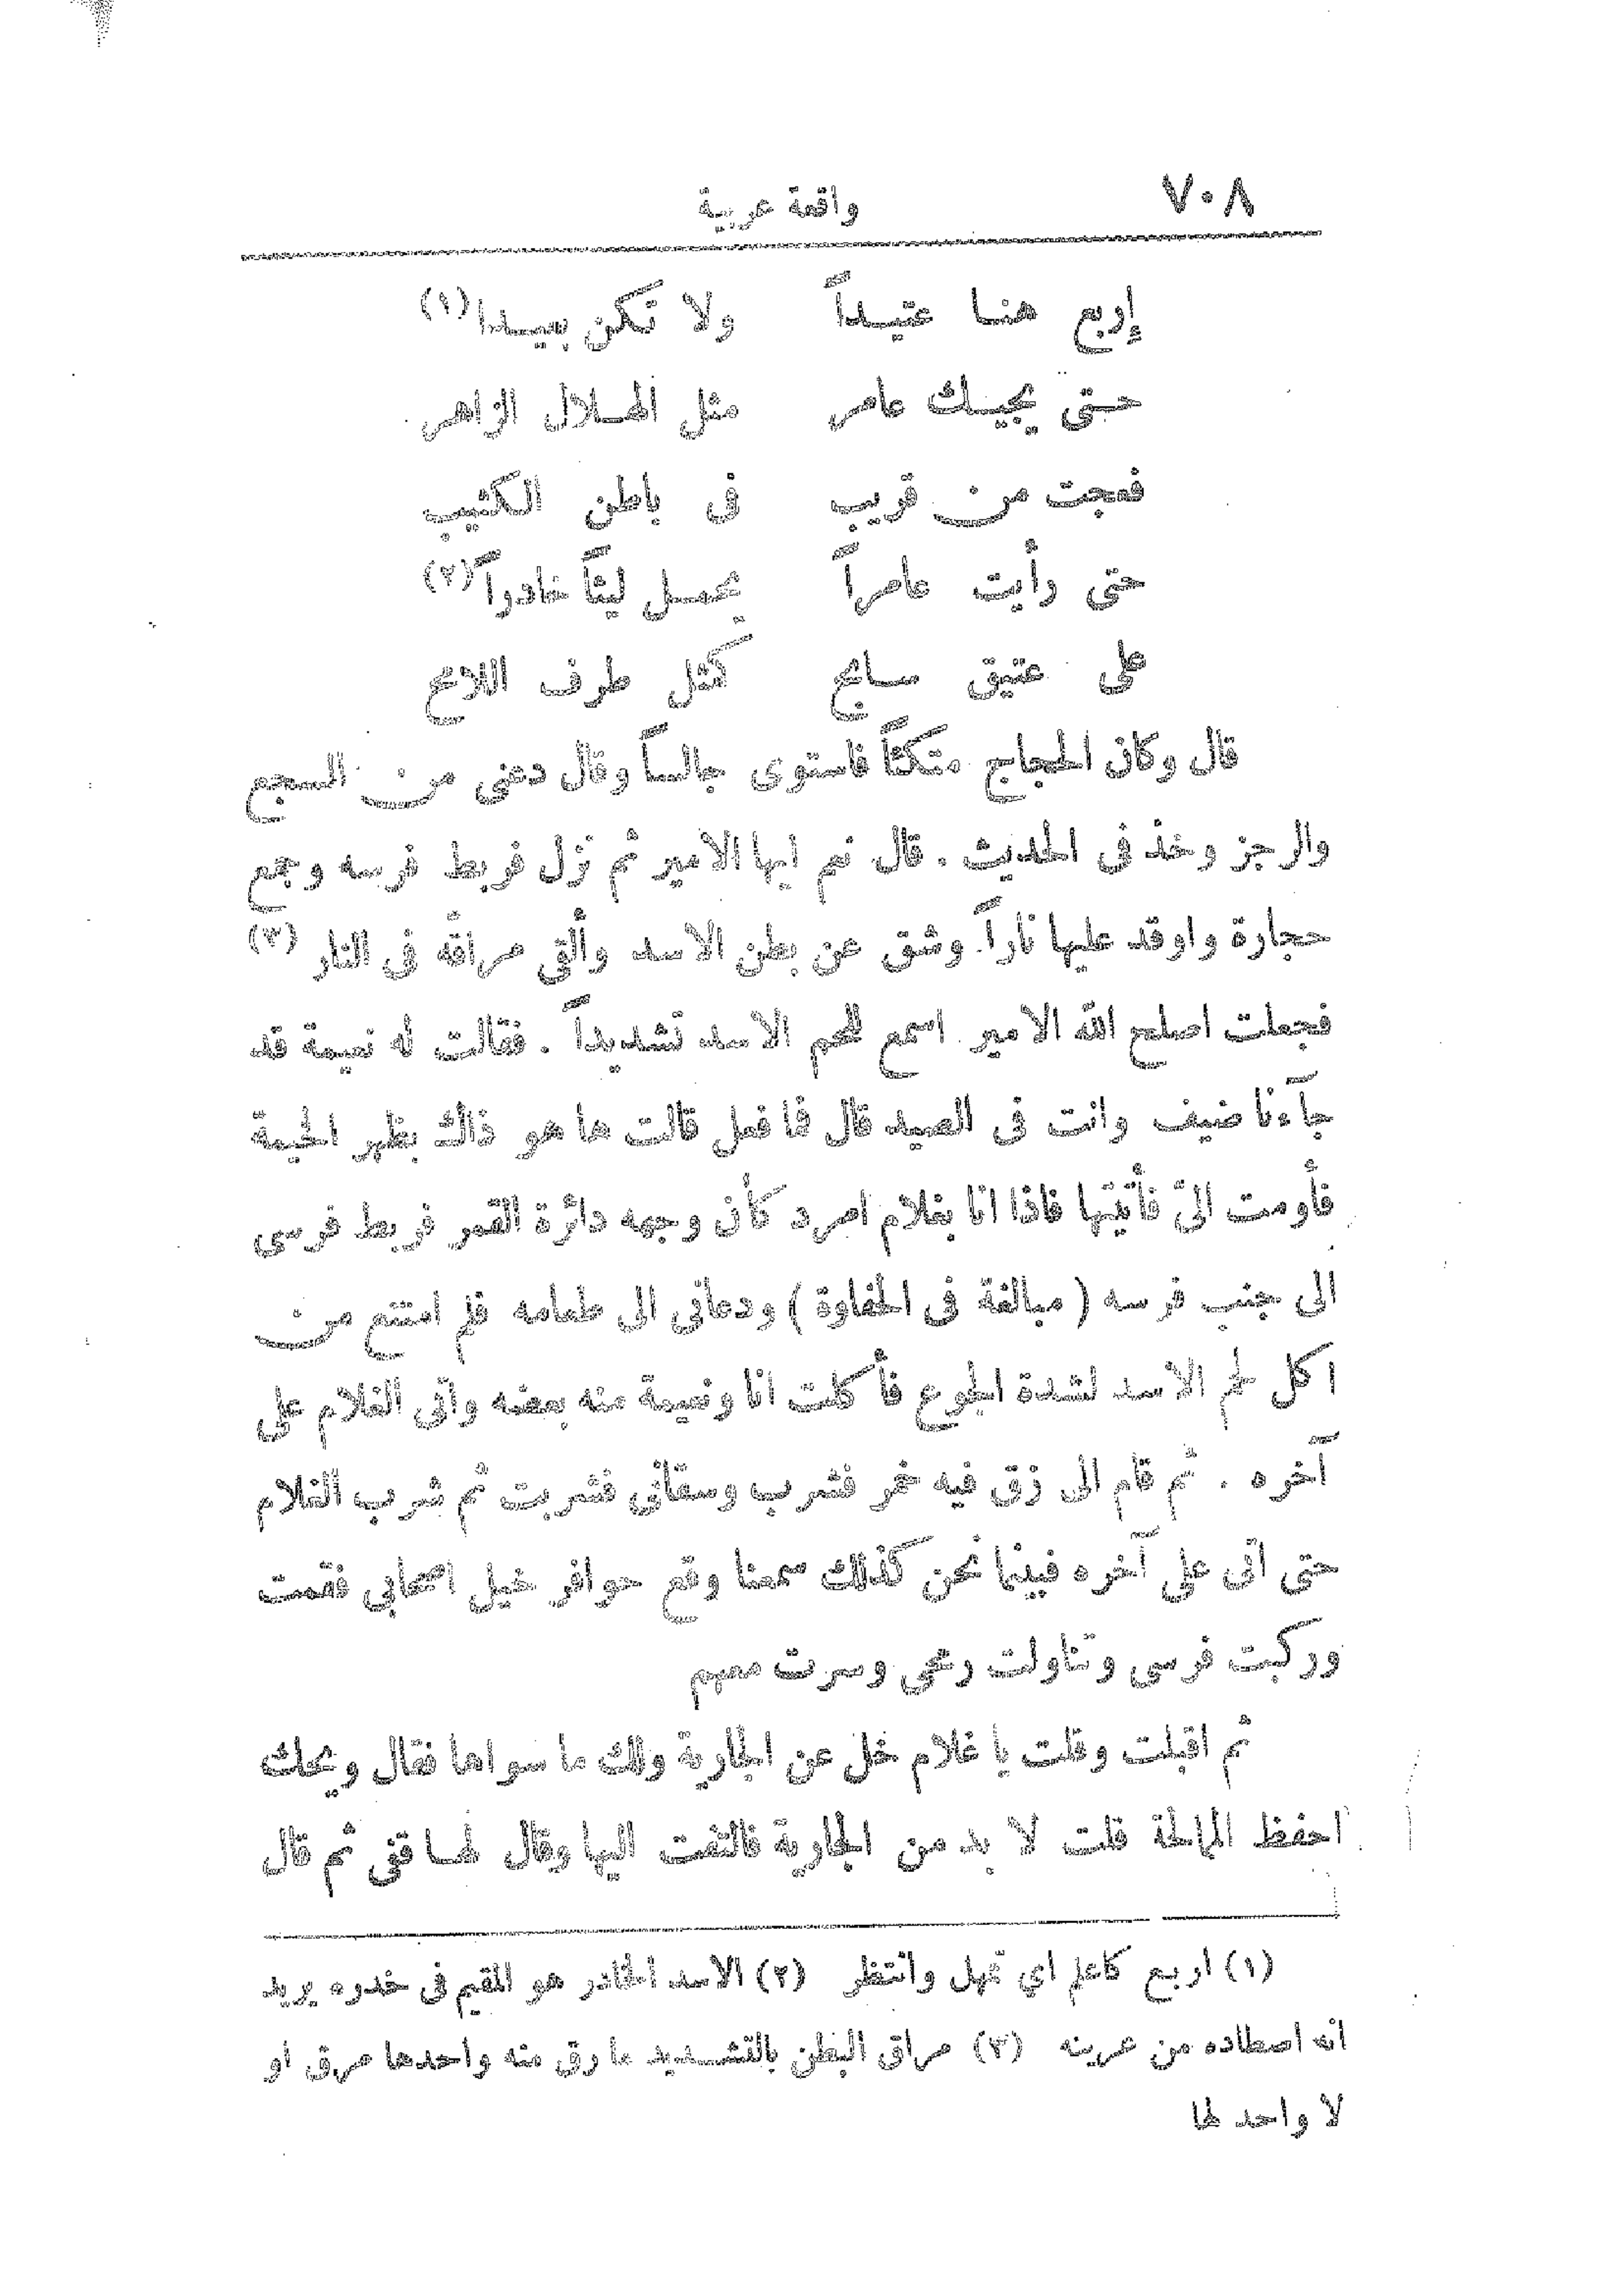 ٧٠٨ واقعة عربية
إربع هنا عتيداً ولا تكن بعيدا (١)
حتى يجيك عامر مثل الهلال الزاهر
فعجت من قريب فى باطن الكثيب
حتى رأيت عامراً يحمل ليثاً خادراً (٢)
على عتيق سابح كمثل طرف اللامح
قال وكان الحجاج متكئاً فاستوى جالساً وقال دعنى من السجع
والرجز وخذ فى الحديث . قال نعم ايها الامير ثم نزل فربط فرسه وجمع
حجارة واوقد عليها ناراً وشق عن بطن الاسد وألقى مراقّه فى النار (٣)
فجعلت اصلح الله الامير اسمع للحم الاسد تشديداً . فقالت له نعيمة قد
جآءنا ضيف وانت فى الصيد قال فما فعل قالت ها هو ذاك بظهر الخيمة
فأومت الىّ فأتيتها فاذا انا بغلام امرد كأن وجهه دائرة القمر فربط فرسى
الى جنب فرسه ( مبالغة فى الحفاوة ) ودعانى الى طعامه فلم امتنع من
اكل لحم الاسد لشدة الجوع فأكلت انا ونعيمة منه بعضه واتى الغلام على
آخره . ثم قام الى زق فيه خمر فشرب وسقانى فشربت ثم شرب الغلام
حتى اتى على آخره فبينما نحن كذلك سمعنا وقع حوافر خيل اصحابى فقمت
وركبت فرسى وتناولت رمحى وسرت معهم
ثم اقبلت وقلت يا غلام خل عن الجارية ولك ما سواها فقال ويحك
احفظ الممالحة قلت لا بد من الجارية فالتفت اليها وقال لها قفى ثم قال
(١) اربع كاعلم اي تمهل وانتظر (٢) الاسد الخادر هو المقيم فى خدره يريد
انه اصطاده من عرينه (٣) مراق البطن بالتشديد ما رق منه واحدها مرق او
لا واحد لها